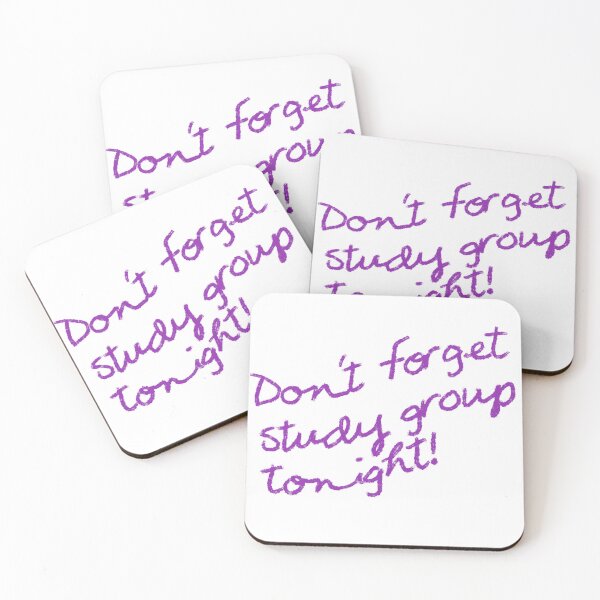 Don't forget
group
Don't forget
study group
tonight!
Don't forget
study group
tonight!
Don't forget
study group
tonight!